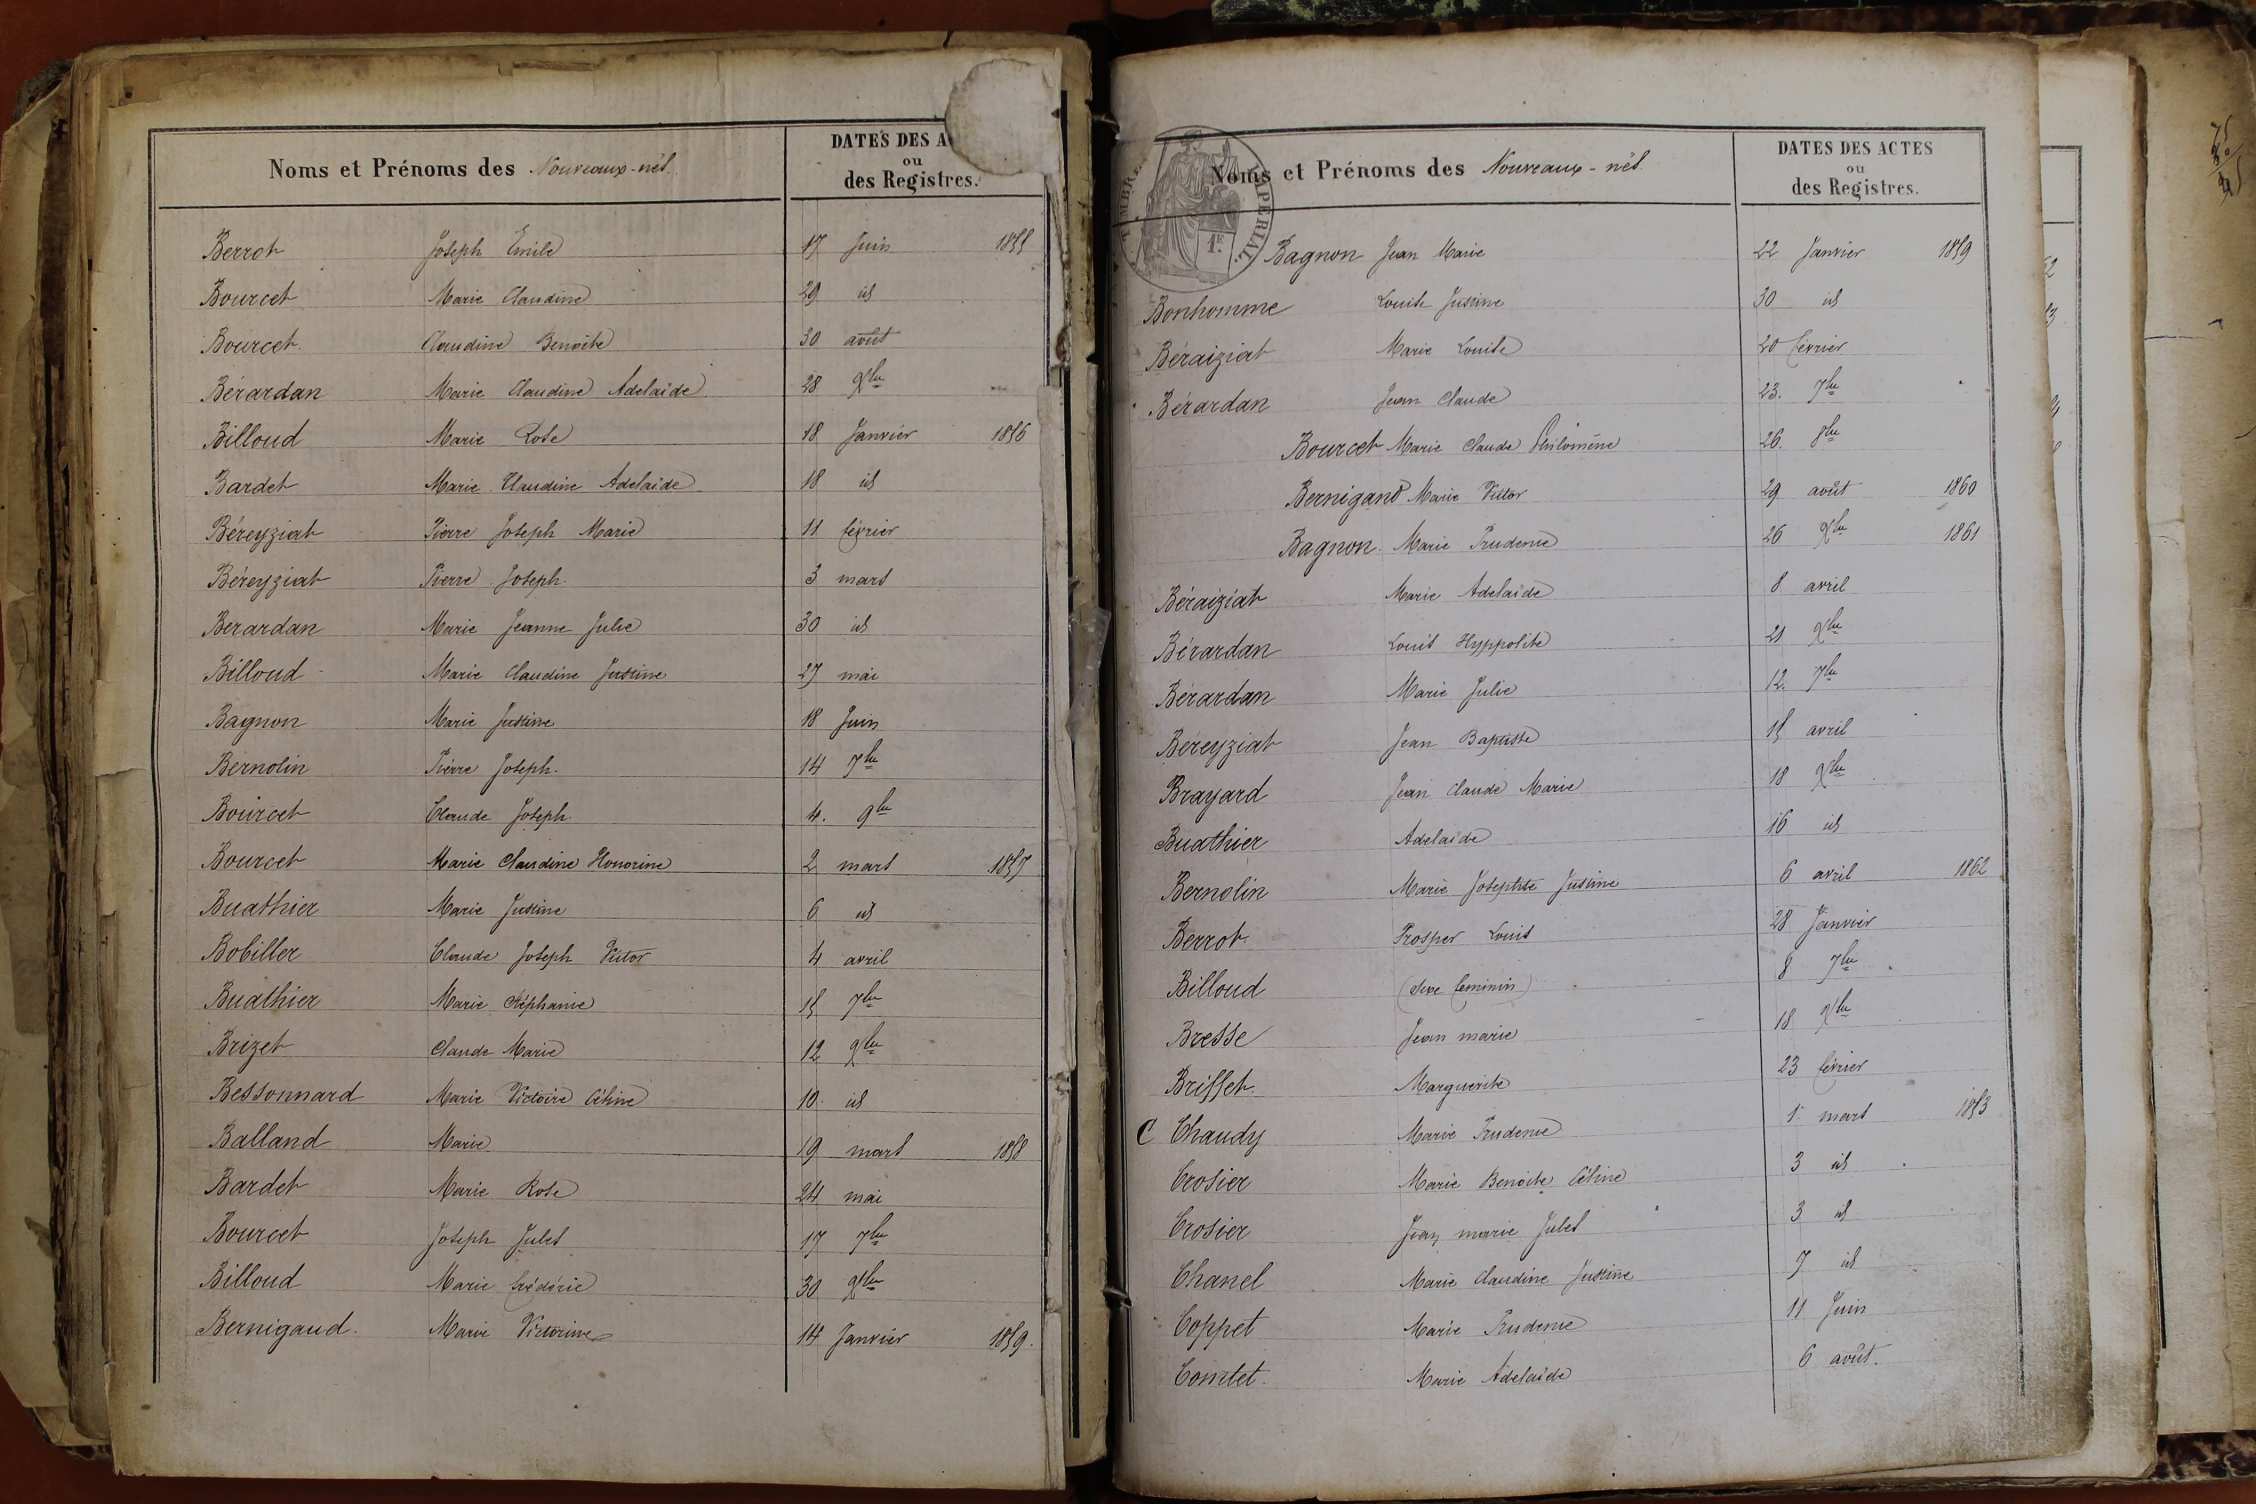 Noms et Prénoms des Nouveaux-nés.
DATES DES A
ou
des Registres.
Berrot Joseph Emile 17 Juin 1855
Bourcet Marie Claudine 29 id
Bourcet Claudine Benoite 30 août
Bérardan Marie Claudine Adelaïde 28 Xbre
Billoud Marie Rose 18 Janvier 1856
Bardet Marie Claudine Adelaïde 18 id
Béreyziat Pierre Joseph Marie 11 février
Béreyziat Pierre Joseph 3 mars
Berardan Marie Jeanne Julie 30 id
Billoud Marie Claudine Justine 27 mai
Bagnon Marie Justine 18 Juin
Bernolin Pierre Joseph 14 7bre
Bourcet Claude Joseph 4. 9bre
Bourcet Marie Claudine Honorine 2 mars 1857
Buathier Marie Justine 6 id
Bobiller Claude Joseph Victor 4 avril
Buathier Marie Stéphanie 15 7bre
Brizet Claude Marie 12 Xbre
Bessonnard Marie Victoire Céline 10 id
Balland Marie 19 mars 1858
Bardet Marie Rose 24 mai
Bourcet Joseph Jules 17 7bre
Billoud Marie Frédéric 30 Xbre
Bernigaud. Marie Victorine 14 Janvier 1859.
TIMBRE IMPERIAL
1F.
Noms et Prénoms des Nouveaux-nés.
DATES DES ACTES
ou
des Registres.
Bagnon Jean Marie 22 Janvier 1859
Bonhomme Louise Justine 30 id
Béraiziat Marie Louise 20 février
Bérardan Jean Claude 23. 7bre
Bourcet Marie Claude Philomène 26. 8bre
Bernigand Marie Victor 29 août 1860
Bagnon. Marie Prudence 26 Xbre 1861
Béraiziat Marie Adelaïde 8 avril
Bérardan Louis Hyppolite 21 Xbre
Bérardan Marie Julie 12. 7bre
Béreyziat Jean Baptiste 15 avril
Brayard Jean Claude Marie 18 Xbre
Buathier Adelaïde 16 id
Bernolin Marie Josephte Justine 6 avril 1862
Berrot Prosper Louis 28 Janvier
Billoud (Sexe féminin) 8 7bre
Bresse Jean marie 18 Xbre
Briffet. Marguerite 23 février
C Chaudy Marie Prudence 1er mars 1853
Crosier Marie Benoite Céline 3 id
Crosier Jean marie Jules 3 id
Chanel Marie Claudine Justine 7 id
Coppet Marie Prudence 11 Juin
Comtet. Marie Adelaïde 6 août.